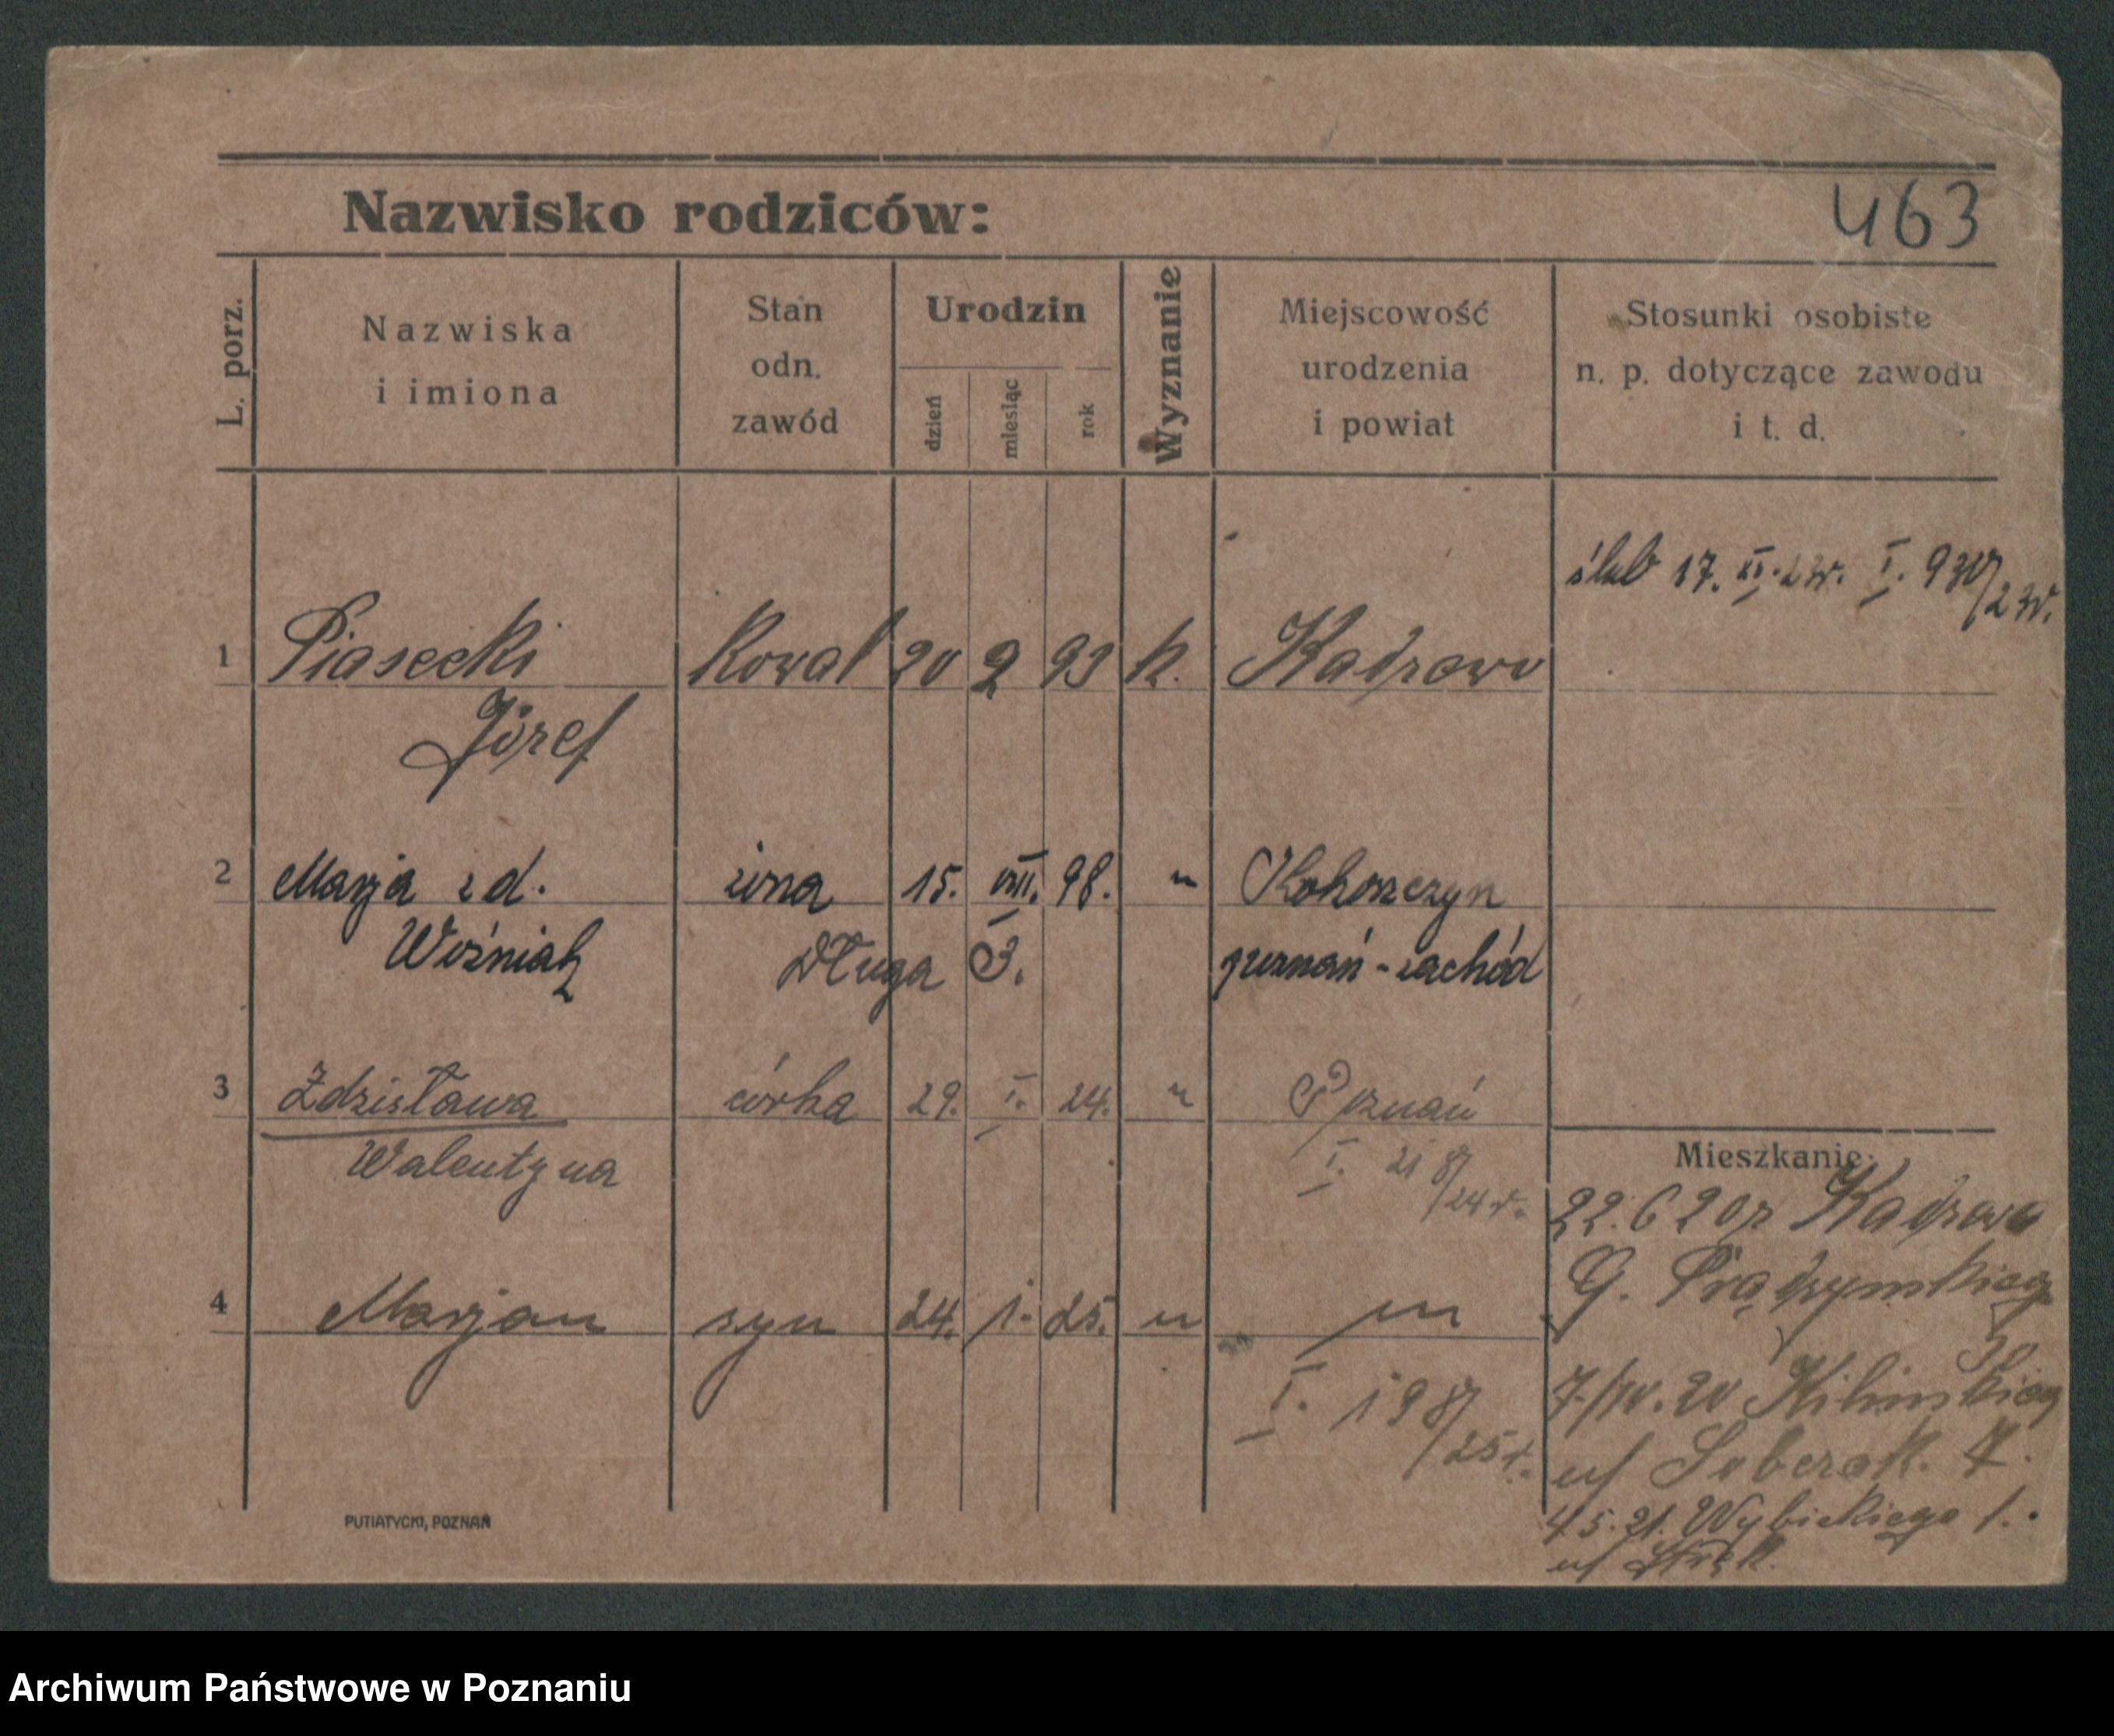 Nazwisko rodziców:
463
L. porz.
Nazwiska
i imiona
Stan
odn.
zawód
Urodzin
dzień
miesiąc
rok
Wyznanie
Miejscowość
urodzenia
i powiat
Stosunki osobiste
n. p. dotyczące zawodu
i t. d.
ślub 17. 23r. I. 930/23r.
1 Piasecki Kowal 20 2 93 k.
Józef
2 Marja z d. żona 15. VIII. 98. "
Woźniak Długa 3. poznań-zachód
3 Zdzisława córka 29. I. 24. " Poznań
Walentyna I. 218/24r.
4 Marjan syn 24. 1. 25. " "
I. 198/25r.
Mieszkanie:
22.6 20r
G. Prądzyńskiego
Kilińskiego
7.
4.5.21. Wybickiego 1.
PUTIATYCKI, POZNAŃ
Archiwum Państwowe w Poznaniu